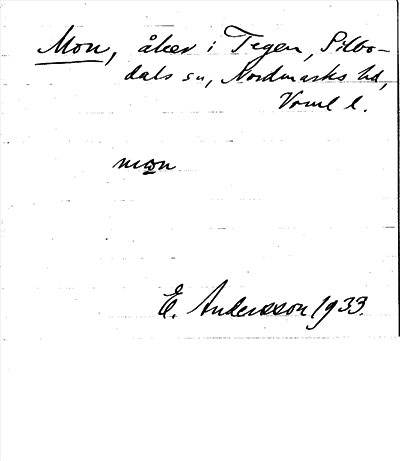 Mon, åker i Tegen, Silbo-
dals sn, Nordmarks hd,
Värml l.
mɷn
E. Andersson 1933.